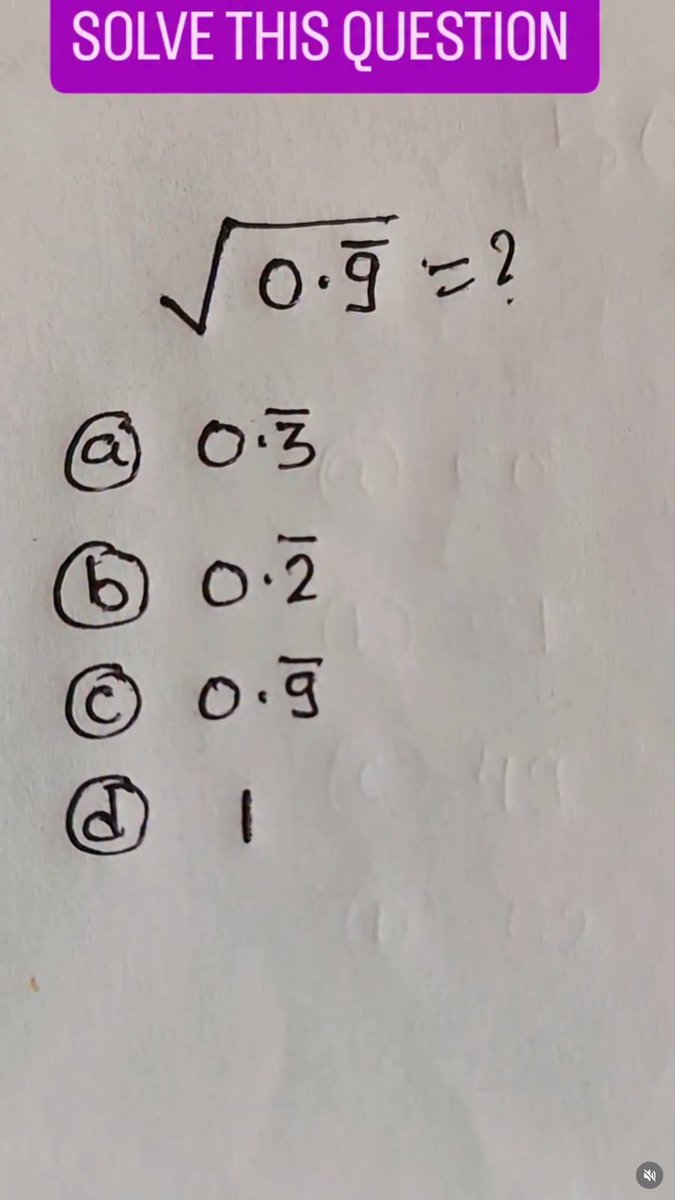 SOLVE THIS QUESTION
√0.9̅ = ?
(a) 0.3̅
(b) 0.2̅
(c) 0.9̅
(d) 1